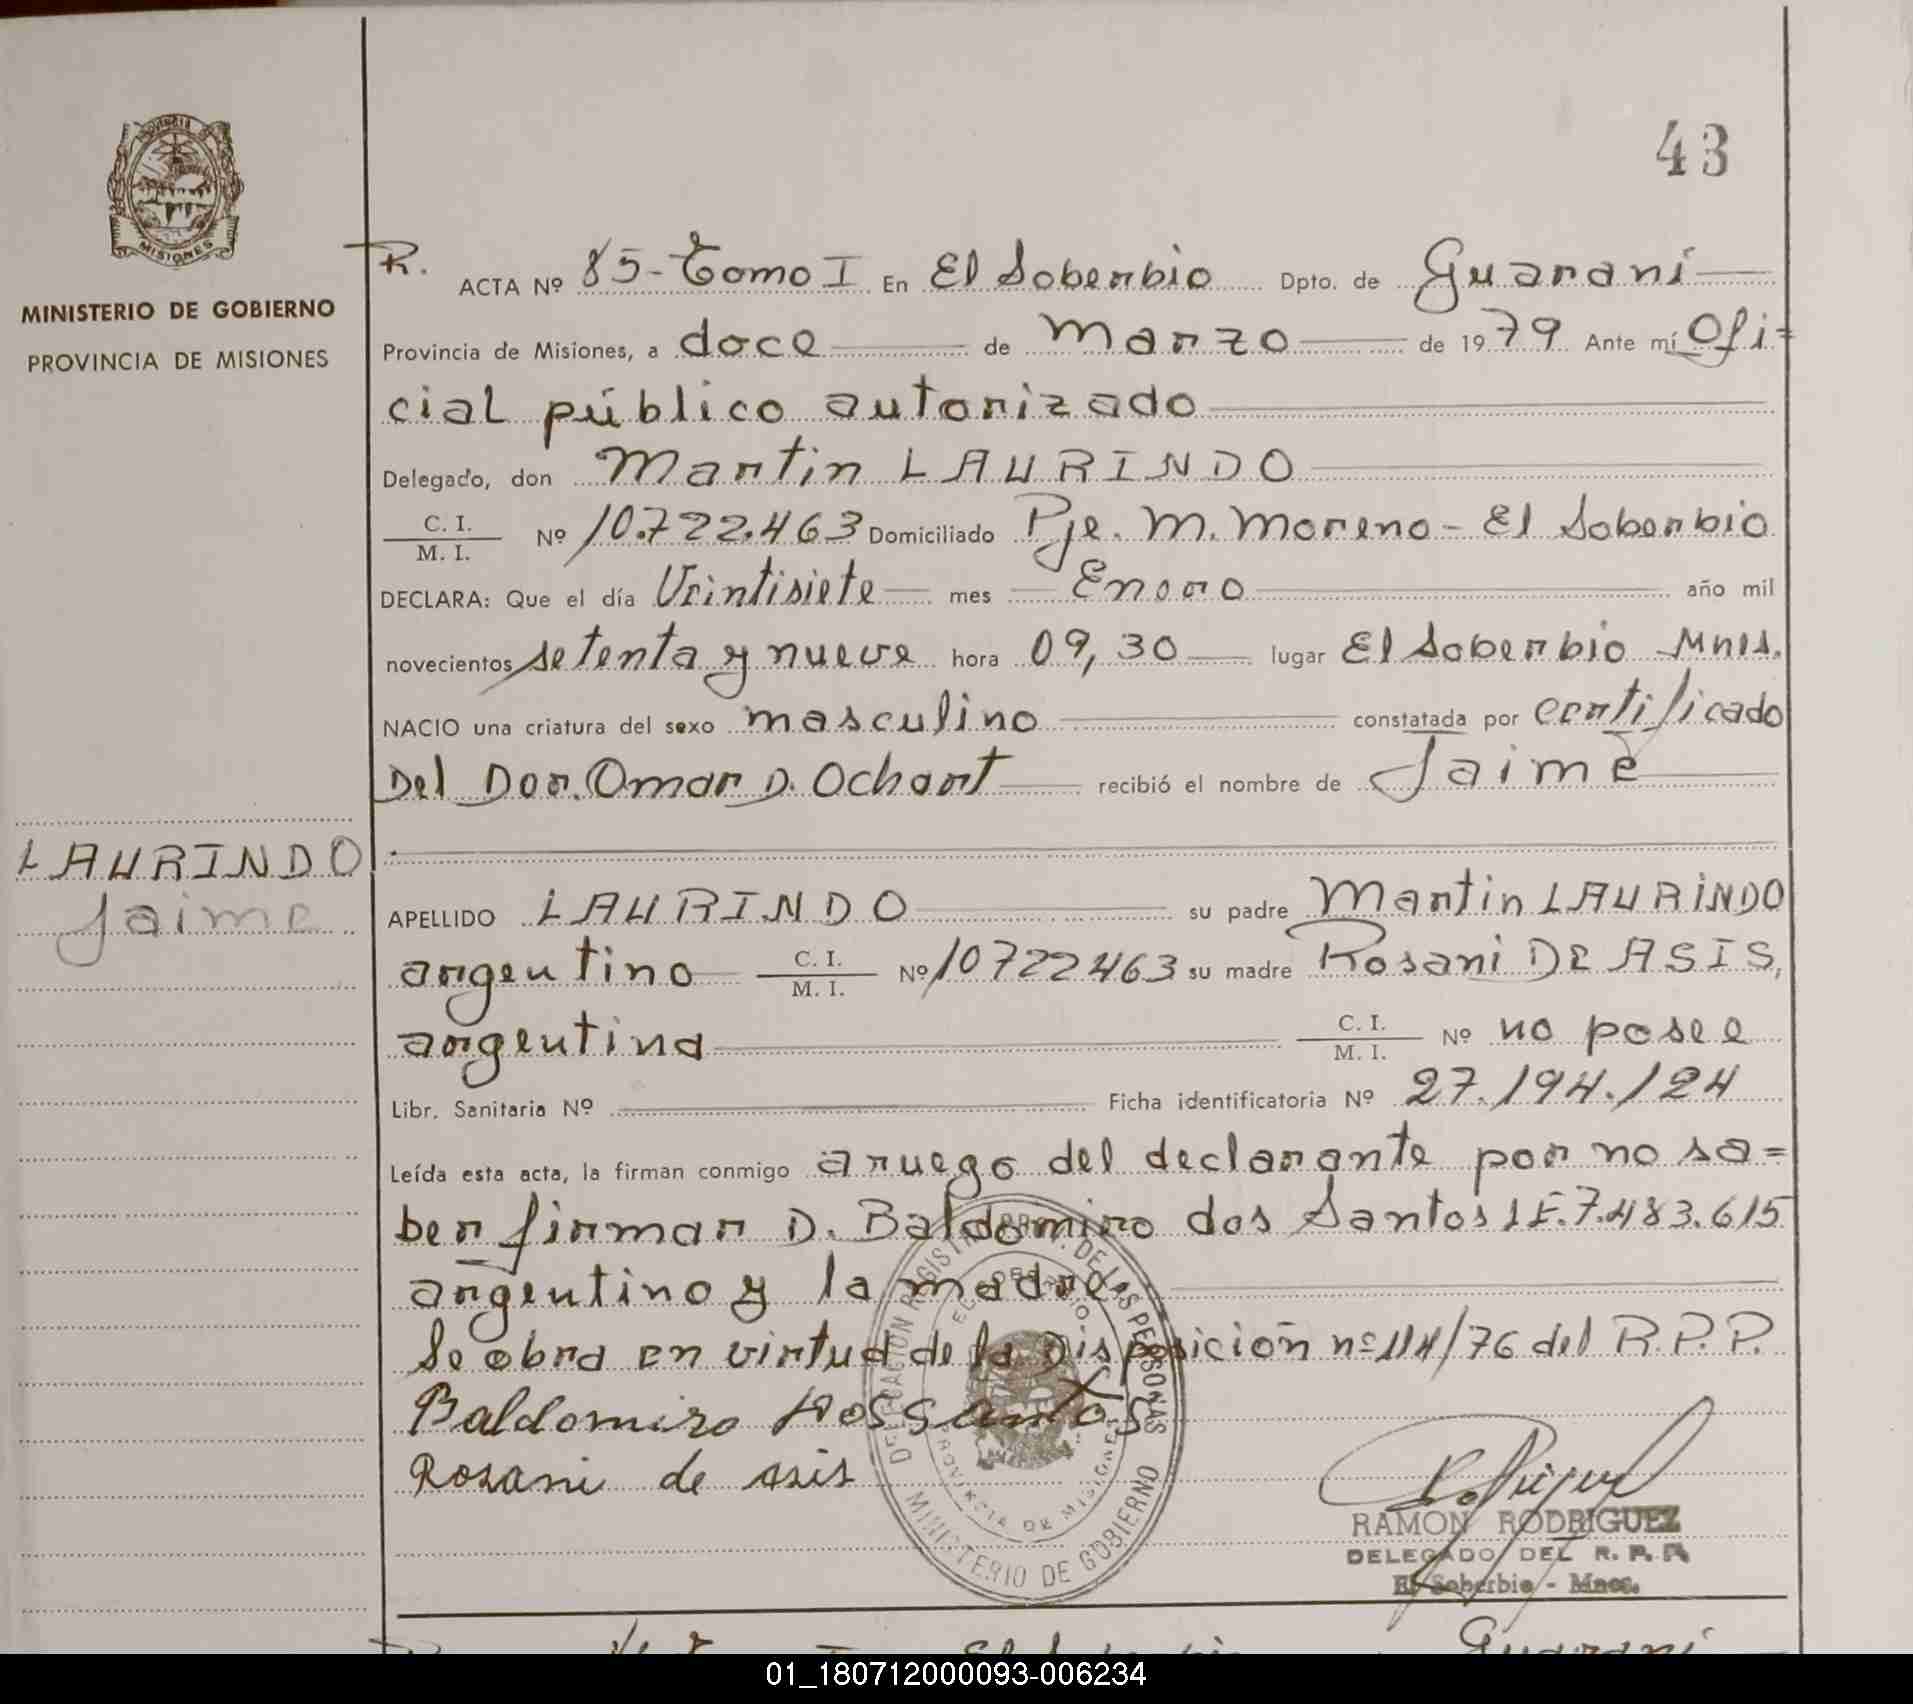 43
PROVINCIA
MISIONES
MINISTERIO DE GOBIERNO
PROVINCIA DE MISIONES
R. ACTA Nº 85- Tomo I En El Soberbio Dpto. de Guaraní
Provincia de Misiones, a doce de Marzo de 1979 Ante mí Ofi=
cial público autorizado
Delegado, don Martin LAURINDO
C. I. / M. I. Nº 10.722.463 Domiciliado Pje. M. Moreno - El Soberbio
DECLARA: Que el día Veintisiete mes Enero año mil
novecientos setenta y nueve hora 09,30 lugar El Soberbio Mnes.
NACIO una criatura del sexo masculino constatada por certificado
Del Dor. Omar D. Ochart recibió el nombre de Jaime
LAURINDO
Jaime
APELLIDO LAURINDO su padre Martin LAURINDO
argentino C. I. / M. I. Nº 10722463 su madre Rosani DE ASIS,
argentina C. I. / M. I. Nº no posee
Libr. Sanitaria Nº Ficha identificatoria Nº 27.194.124
Leída esta acta, la firman conmigo aruego del declarante por no sa=
ber firmar D. Baldomiro dos Santos LE.7.483.615
argentino y la madre.
Se obra en virtud de la Disposición nº 114/76 del R.P.P.
Baldomiro dos santos
Rosani de asis
DELEGACION REGISTRO PROV. DE LAS PERSONAS
MINISTERIO DE GOBIERNO
EL SOBERBIO
PROVINCIA DE MISIONES
RAMON RODRIGUEZ
DELEGADO DEL R. P. P.
El Soberbio - Mnes.
01_180712000093-006234